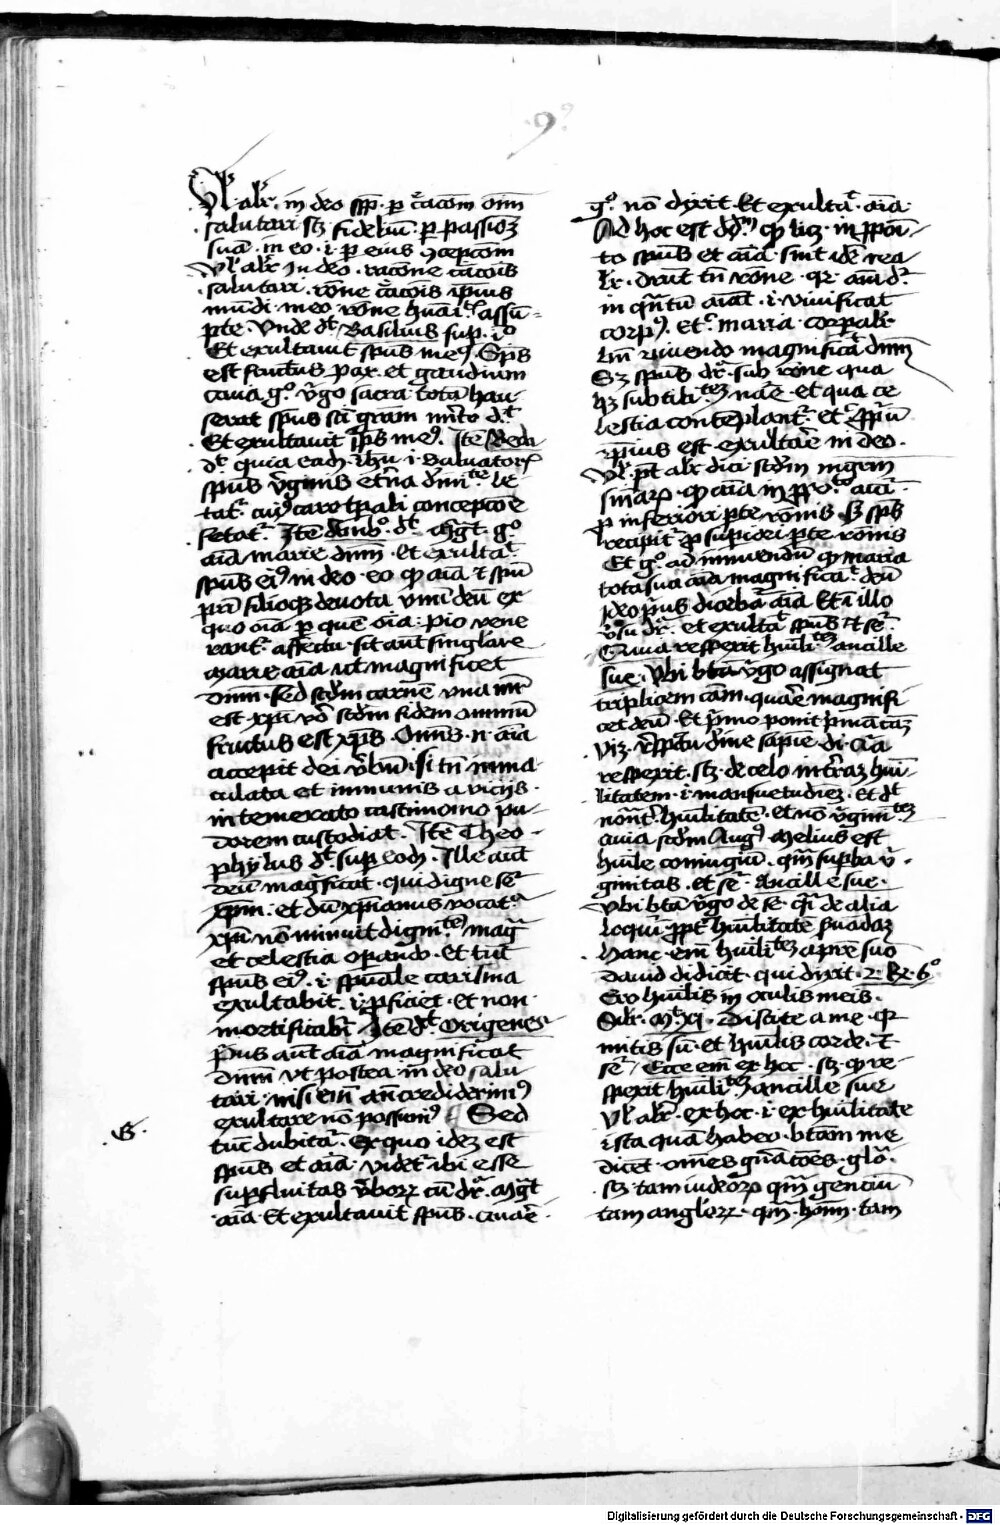 9º
Vl' alr̄. in deo spē. p c̄acōm oīm
salutari sꝫ fideliū. p passioꝫ
suā. in eo. i. p eius ɔcepcōm
Vl' alr̄ In deo. racōne c̄acōis
salutari. rōne c̄acōis ipius
mūdi. meo rōne huāit' assū=
pte. Vnde dt̄ Basilius sup. iº
Et exultauit spūs meꝰ. Sp̄s
est fruct̄us pax. et gaudium
cauā gº. v̄go sacra totā hau
serat spūs scī grām mi'to dt̄
Et exultauit sp̄s meꝰ. Itē Beda
dt̄ quia eadē. Ihū i. Saluatorē
spūs v̄ginis et'na d'mit'te le
tat'. cuiꝰ caro tp̄ali concepcōe
fetat'. Itē dōmbº. dt̄ mg̅t. gº.
aīa marie dn̄m. et exultat'.
spūs eiꝰ in deo. eo qꝫ aīa ⁊ spū
pri filioqꝫ deuota vnū deū ex
quo oīa p quē oīa. pio vene
rant'. affectu. sit aūt singl'are
marie aīa ut magnificet
Dn̄m. Sed scdm carnē vna mr̄
est xpī v'o scdm fidem omniū
fructus est xp̄s. Omnis. n̄. aīa
accepit dei v̄bū. si tn̄ inma
culata et inmunis a vicijs.
intemerato castimonio pu
dorem custodiat. Itē Theo
phylus dt̄ sup eodē. Ille aūt
deū mag̅ficat. qui digne se'
xp̄m. et dū xp̄ianus vocat'
xpī nō minuit dignit'tē mag̅
et celestia operando. Et tūc
spūs eiꝰ. i. spūale carisma
exultabit. i. pficiet. et non
mortificabit'. Itē dt̄ Origenes
P̄us aūt aīa magnificat
Dn̄m vt postea in deo salu
tari. nisi em̄ an̄ crediderimꝰ
exultare nō possumꝰ Sed
.G.
tūc dubitat'. Ex quo idez est
spūs et aīa. videt' ibi esse
supfluitas v̄borꝫ cū dr̄. mg̅t
aīa. Et exultauit spūs. Quare
gº. nō dixit. Et exulta't. aīa
Ad hoc est dd̄ꝫ qꝫ licꝫ. in ppōi
to spūs et aīa sint idē rea
lr̄. dr̄nt tn̄ rōne. qr̄ aīa dr̄
in qn̄tū aīat. i. viuificat
corpꝰ. et' maria corpalr̄
Um̄ ⁊ viuendo magnifica't dn̄m
Sꝫ spūs dr̄ sub rōne qua
hꝫ subtilit'tē nāe. et qua ce
lestia contēplant'. et' ppū
rpius est. exultare in deo.
Vl' pt̄ alr̄ dici scdm ingem
smarꝫ. qꝫ aīa in pp v'to acci'
p inferiori pte rōnis. sꝫ sp̄s
recipit' p supiori pte rōnis
Et gº ad innuendū qꝫ maria
tota sua aīa magnifica't deū
Ideo pūs dicebat aīa Et ī illo
v̄su dr̄. et exulta't spūs ⁊ se'
Quia respexit hūilit'tē ancille
sue. Vbi bt̄a v̄go assignat
triplicem cām. quare magnifi
cet deū. Et p̄mo ponit p̄mā cāꝫ
viꝫ. rspctū dine sapiē. di. Quia
respexit. sꝫ. de celo in t'raz hūi
litatem. i. mansuetudiez. et dt̄
nōnt'. hūilitatē. et nō v̄ginit'tē
quia scdm Augꝰ. Melius est
hūile coniugiū. qm̄ supba v'
ginitas. et se'. Ancille sue.
Vbi bt̄a v̄go de se. qi de alia
loquit' ppt' hūilitatē suadaꝫ
Hanc. em̄ hūilit'tē a p̄re suo
dauid didicit. qui dixit. 2. Re. 6º
Ero hūilis in oculis meis.
Silr̄. Mt. xi. Discite a me. qr̄
mitis sū. et hūilis corde. ⁊
se'. Ecce em̄ ex hoc. sꝫ. qꝫ re
spexit hūilit'tē ancille sue
Vl' alr̄. ex hoc. i. ex hūilitate
ista quā habeo. bt̄am me
dicēt. omēs gn̄acōes. glō.
sꝫ. tam iudeorꝫ qm̄ gentiū
tam anglorꝫ. qm̄. hoīm. tam
Digitalisierung gefördert durch die Deutsche Forschungsgemeinschaft - DFG